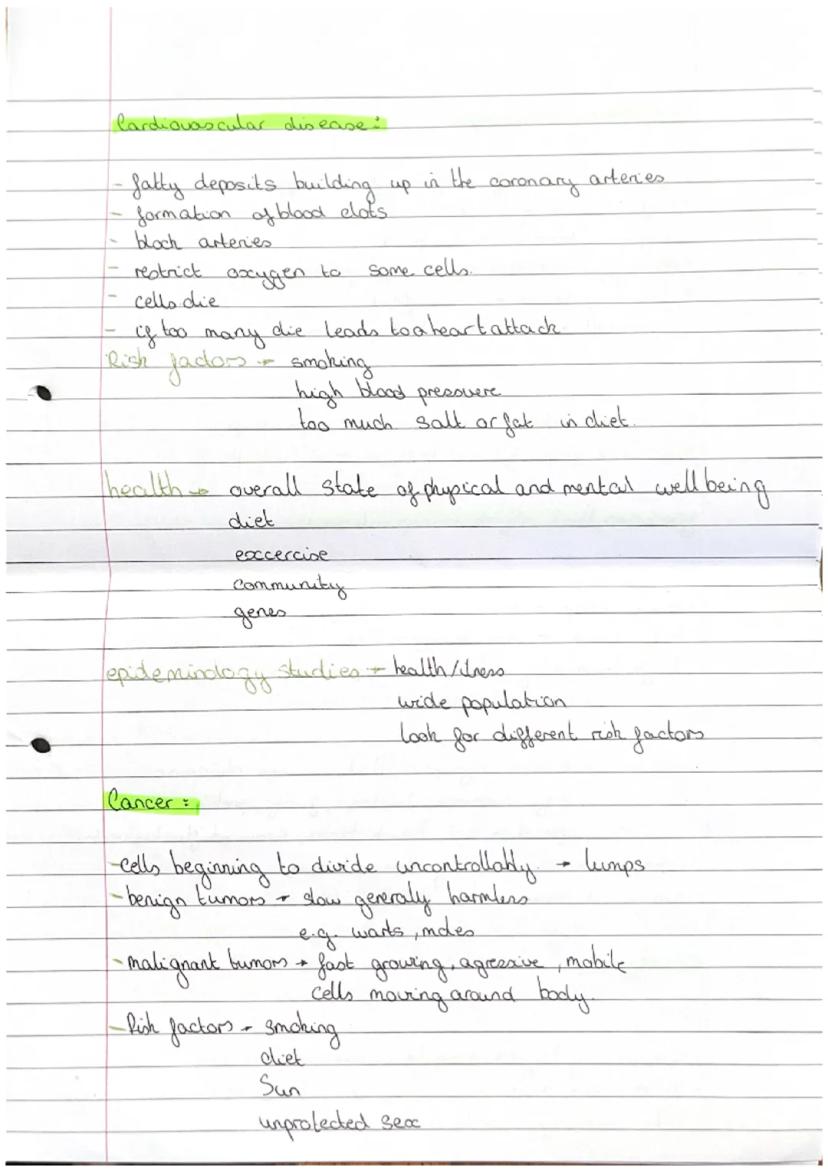 Cardiovascular disease:
- fatty deposits building up in the coronary arteries
- formation of blood clots
- block arteries
- restrict oxygen to some cells.
- cells die
- if too many die leads to a heart attack
Risk factors → smoking
high blood pressure
too much salt or fat in diet.
health → overall state of physical and mental well being
diet
exccercise
community
genes
epidemiology studies → health/ilness
wide population
look for different risk factors
Cancer:
- cells beginning to divide uncontrollably. → lumps
- benign tumors → slow generaly harmless
e.g. warts, moles
- malignant tumors → fast growing, agressive, mobile
cells moving around body.
- Risk factors → smoking
diet
Sun
unprotected sex